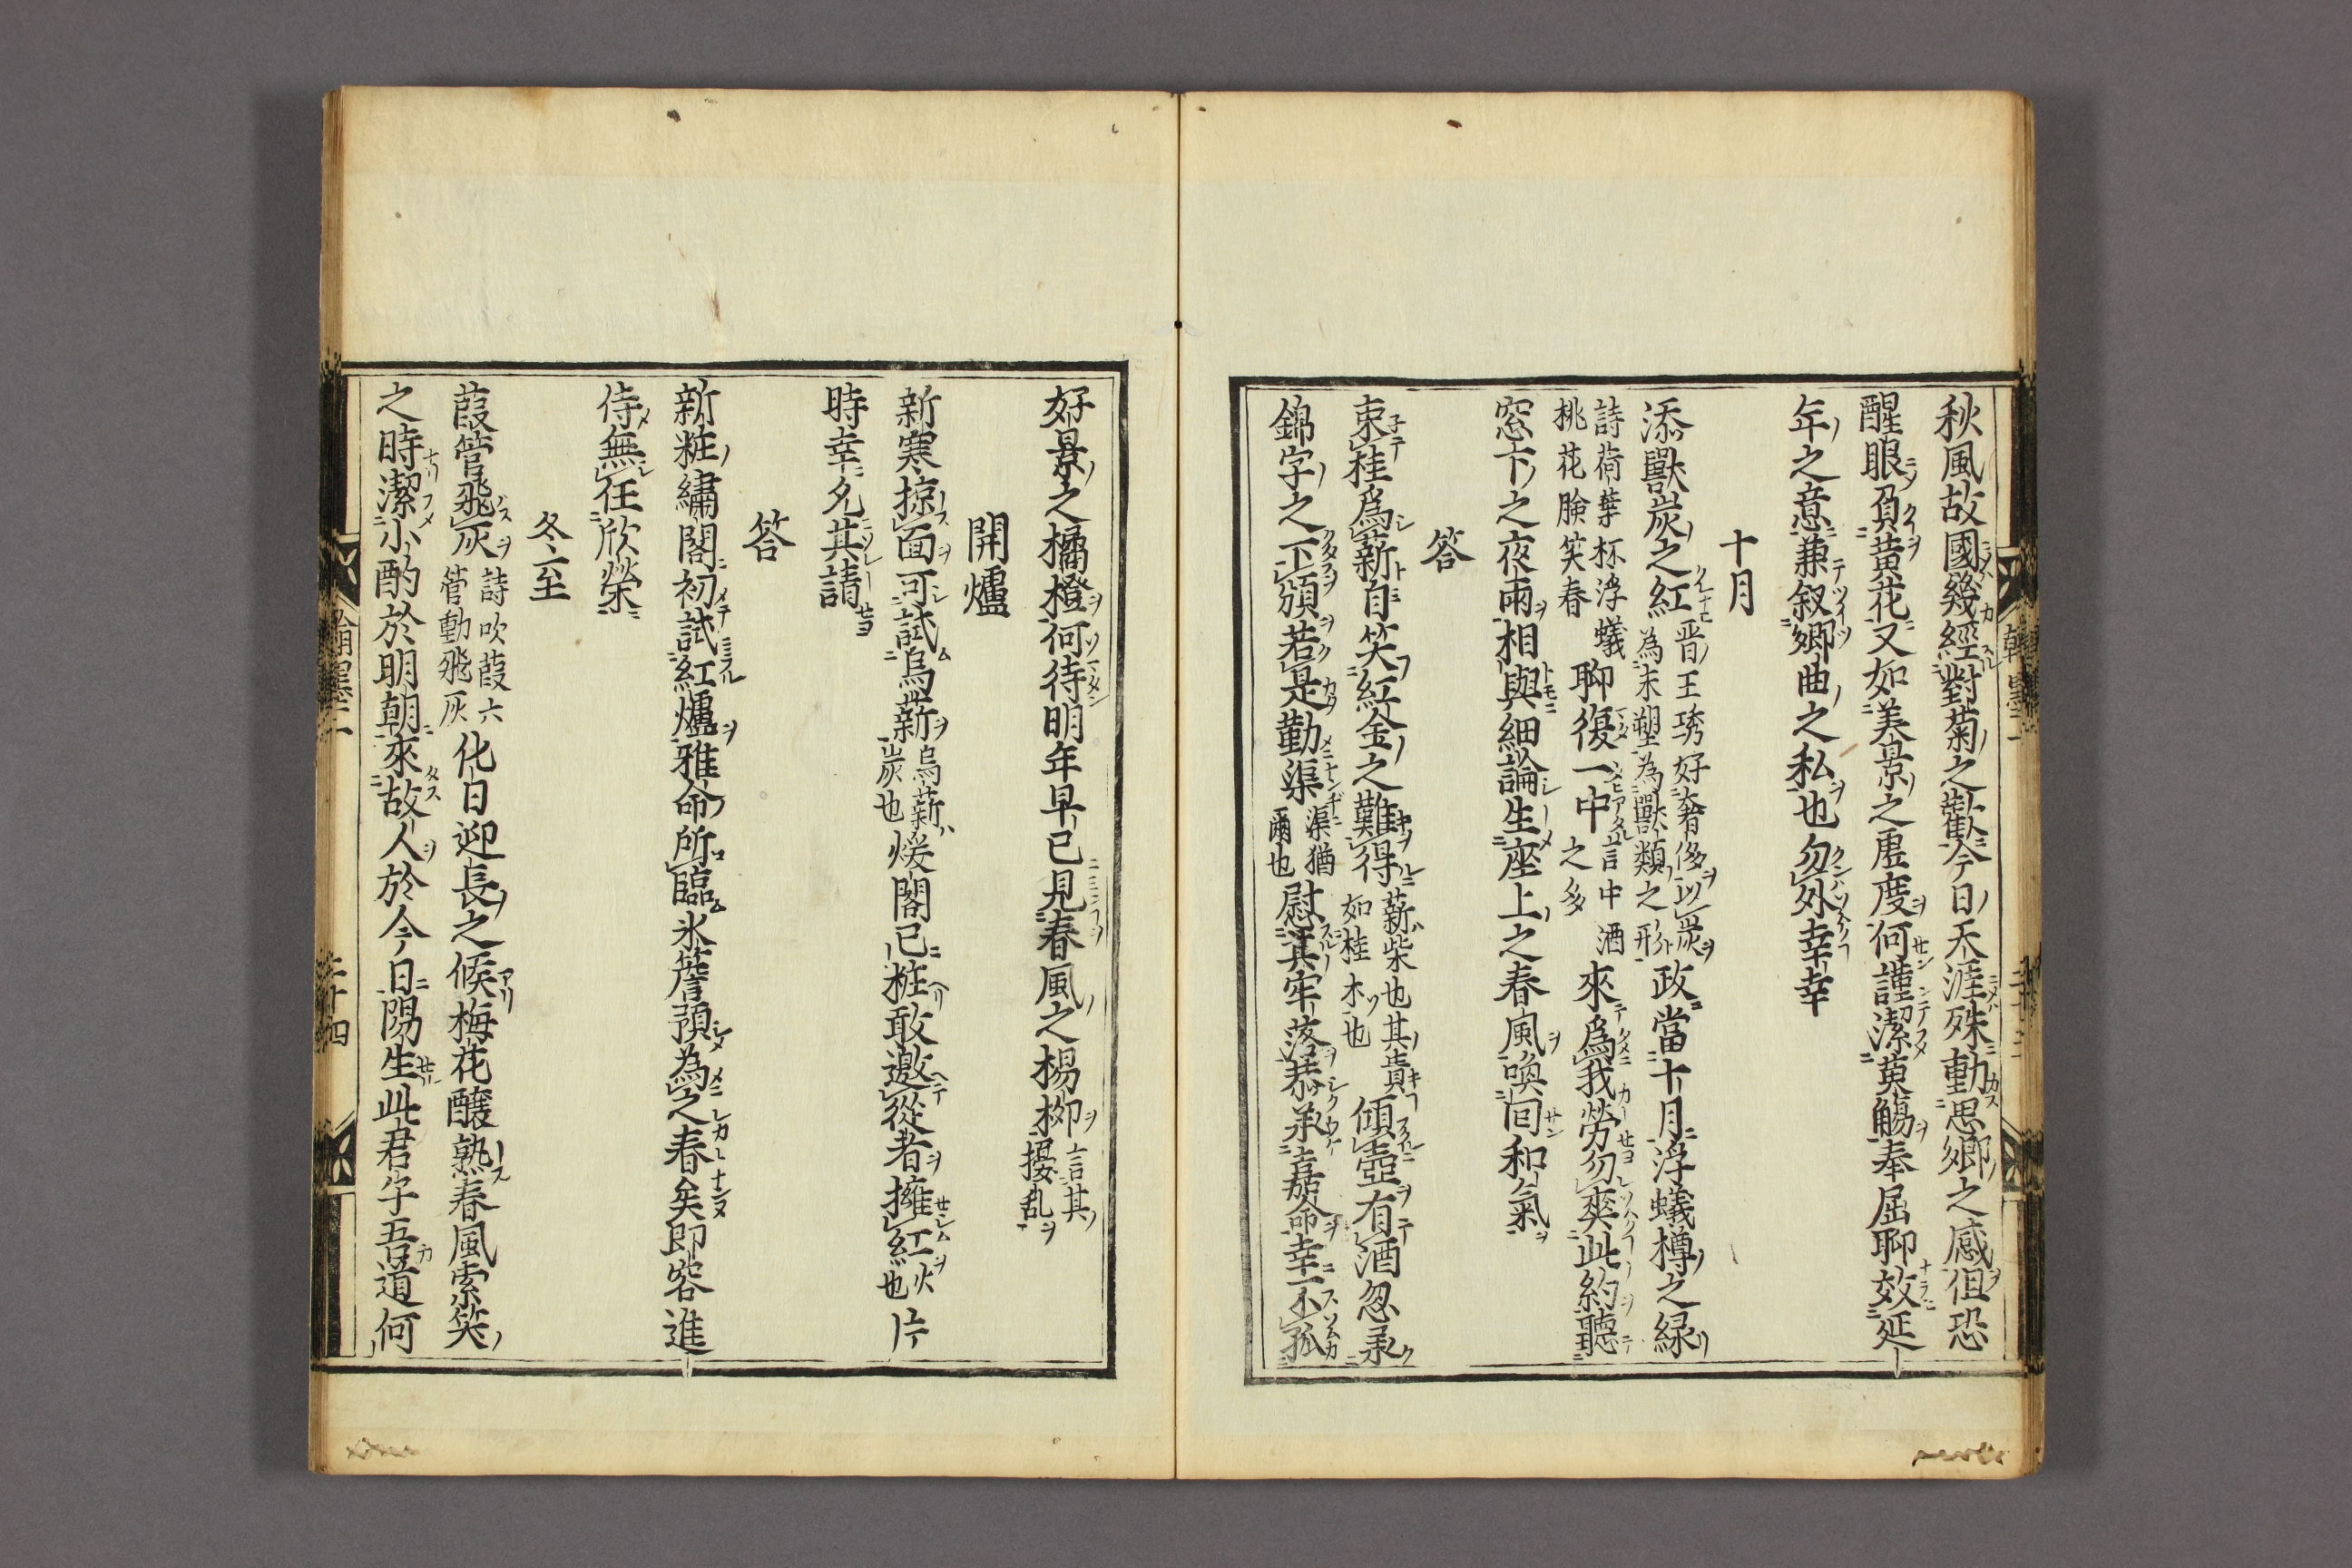 秋風故國幾經對菊之歡今日天涯殊動思郷之感但恐
醒眼負黄花又如美景之虚度何謹潔萸觴奉屈聊效延
年之意兼叙郷曲之私也勿外幸幸
十月
添獸炭之紅晋王琇好奢侈以炭為末塑為獸類之形政當十月浮蟻樽之緑
詩荷葉杯浮蟻桃花臉笑春聊復一中言中酒之多來爲我勞勿爽此約聽
窓下之夜雨相與細論生座上之春風喚回和氣
答
束桂爲薪自笑紅金之難得薪柴也其貴如桂木也傾壺有酒忽承
錦字之下頒若是勤渠渠猶爾也慰其牢落恭承嘉命幸不孤
好景之橘橙何待明年早已見春風之楊柳言其擾乱
開爐
新寒掠面可試烏薪烏薪炭也煖閣已粧敢邀從者擁紅火也片
時幸允其請
答
新粧繡閣初試紅爐雅命所臨氷簷預為之春矣即容進
侍無任欣榮
冬至
葭管飛灰詩吹葭六管動飛灰化日迎長之候梅花醸熟春風索笑
之時潔小酌於明朝來故人於今日陽生此君子吾道何
翰墨二
二十四